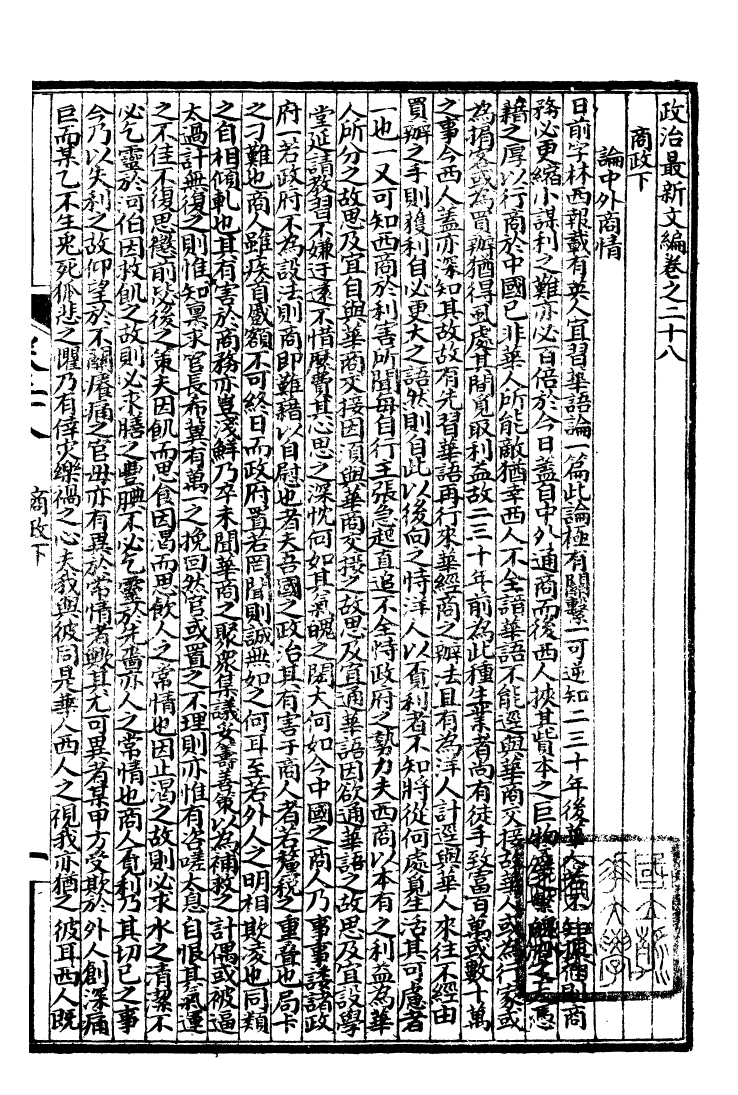 政治最新文編卷之二十八
商政下
論中外商情
日前字林西報載有英人宜習華語論一篇此論極有關繫一可逆知二三十年後華人若不知振作則商
務必更縮小謀利之難亦必百倍於今日蓋自中外通商而後西人挾其貲本之巨物產之繁
藉之厚以行商於中國已非華人所能敵猶幸西人不全諳華語不能逕與華商交接故華人或為行家或
為捐客或為買辦猶得風處其間覓取利益故二三十年前為此種生業者尚有徒手致富百萬或數十萬
之事今西人蓋亦深知其故故有先習華語再行來華經商之辦法且有為洋人計逕與華人來往不經由
買辦之手則獲利自必更大之語然則自此以後向之恃洋人以覓利者不知將從何處覓生活其可慮者
一也一又可知西商於利害所關毎自行主張急起直追不全恃政府之勢力夫西商以本有之利益為華
人所分之故思及宜自與華商交接因須與華商交接之故思及宜通華語因欲通華語之故思及宜設學
堂延請教習不嫌迂遠不惜糜費其心思之深忱何如其氣魄之闊大何如今中國之商人乃事事諉諸政
府一若政府不為設法則商即難藉以自慰也者夫吾國之政治其有害于商人者若釐稅之重疊也局卡
之刁難也商人雖疾首蹙額不可終日而政府置若罔聞則誠無如之何耳至若外人之明相欺凌也同類
之自相傾軋也其有害於商務亦豈淺鮮乃卒未聞華商之聚眾集議妥籌善策以為補救之計偶或被逼
太過計無復之則惟知稟求官長布冀有萬一之挽回然官或置之不理則亦惟有咨嗟太息自恨其氣運
之不佳不復思懲前毖後之策夫因飢而思食因渴而思飲人之常情也因止渴之故則必求水之清潔不
必乞靈於河伯因救飢之故則必求膳之豐腆不必乞靈於先嗇亦人之常情也商人覓利乃其切己之事
今乃以失利之故仰望於不關癢痛之官毋亦有異於常情者歟其尤可異者某甲方受欺於外人創深痛
巨而某乙不生兎死狐悲之懼乃有倖災樂禍之心夫我與彼同是華人西人之視我亦猶之彼耳西人既
商政下